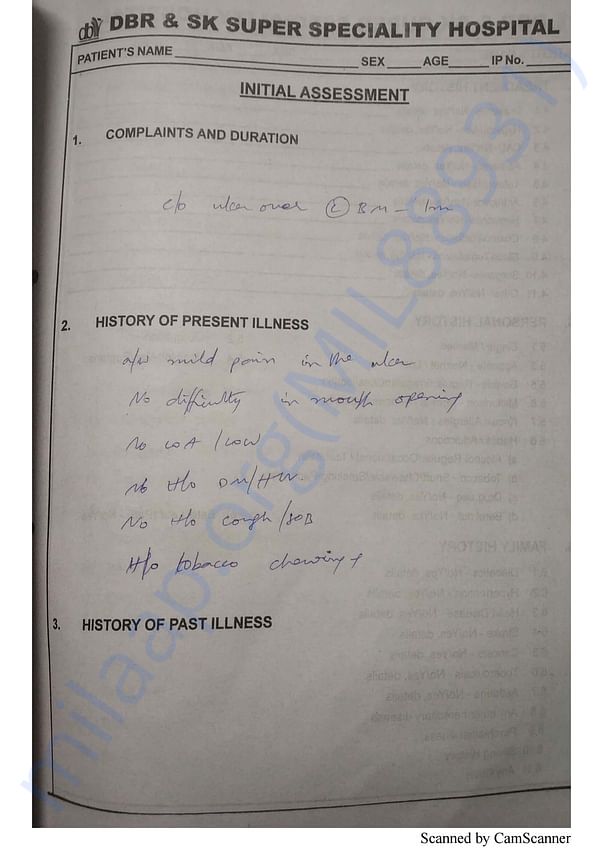 dbr DBR & SK SUPER SPECIALITY HOSPITAL
PATIENT'S NAME SEX AGE IP No.
INITIAL ASSESSMENT
1. COMPLAINTS AND DURATION
c/o ulcer over (L) BM - 1m
2. HISTORY OF PRESENT ILLNESS
a/w mild pain in the ulcer
No difficulty in mouth opening
No LOA / LOW
No H/o DM/HTN.
No H/o cough / SOB
H/o tobacco chewing +
3. HISTORY OF PAST ILLNESS
milaap.org(MIL88931)
Scanned by CamScanner